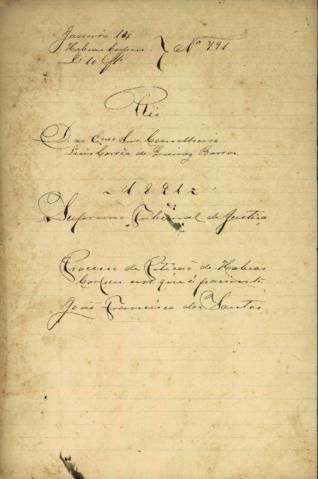 Janeiro 14
Habeas Corpus } Nº 791
Rio
D. ao Exmo Snr. Conselheiro
Luis Corrêa de Queiroz Barros
1891
Supremo Tribunal de Justiça
Processo de Petição de Habeas
Corpus em que é paciente
João Francisco dos Santos